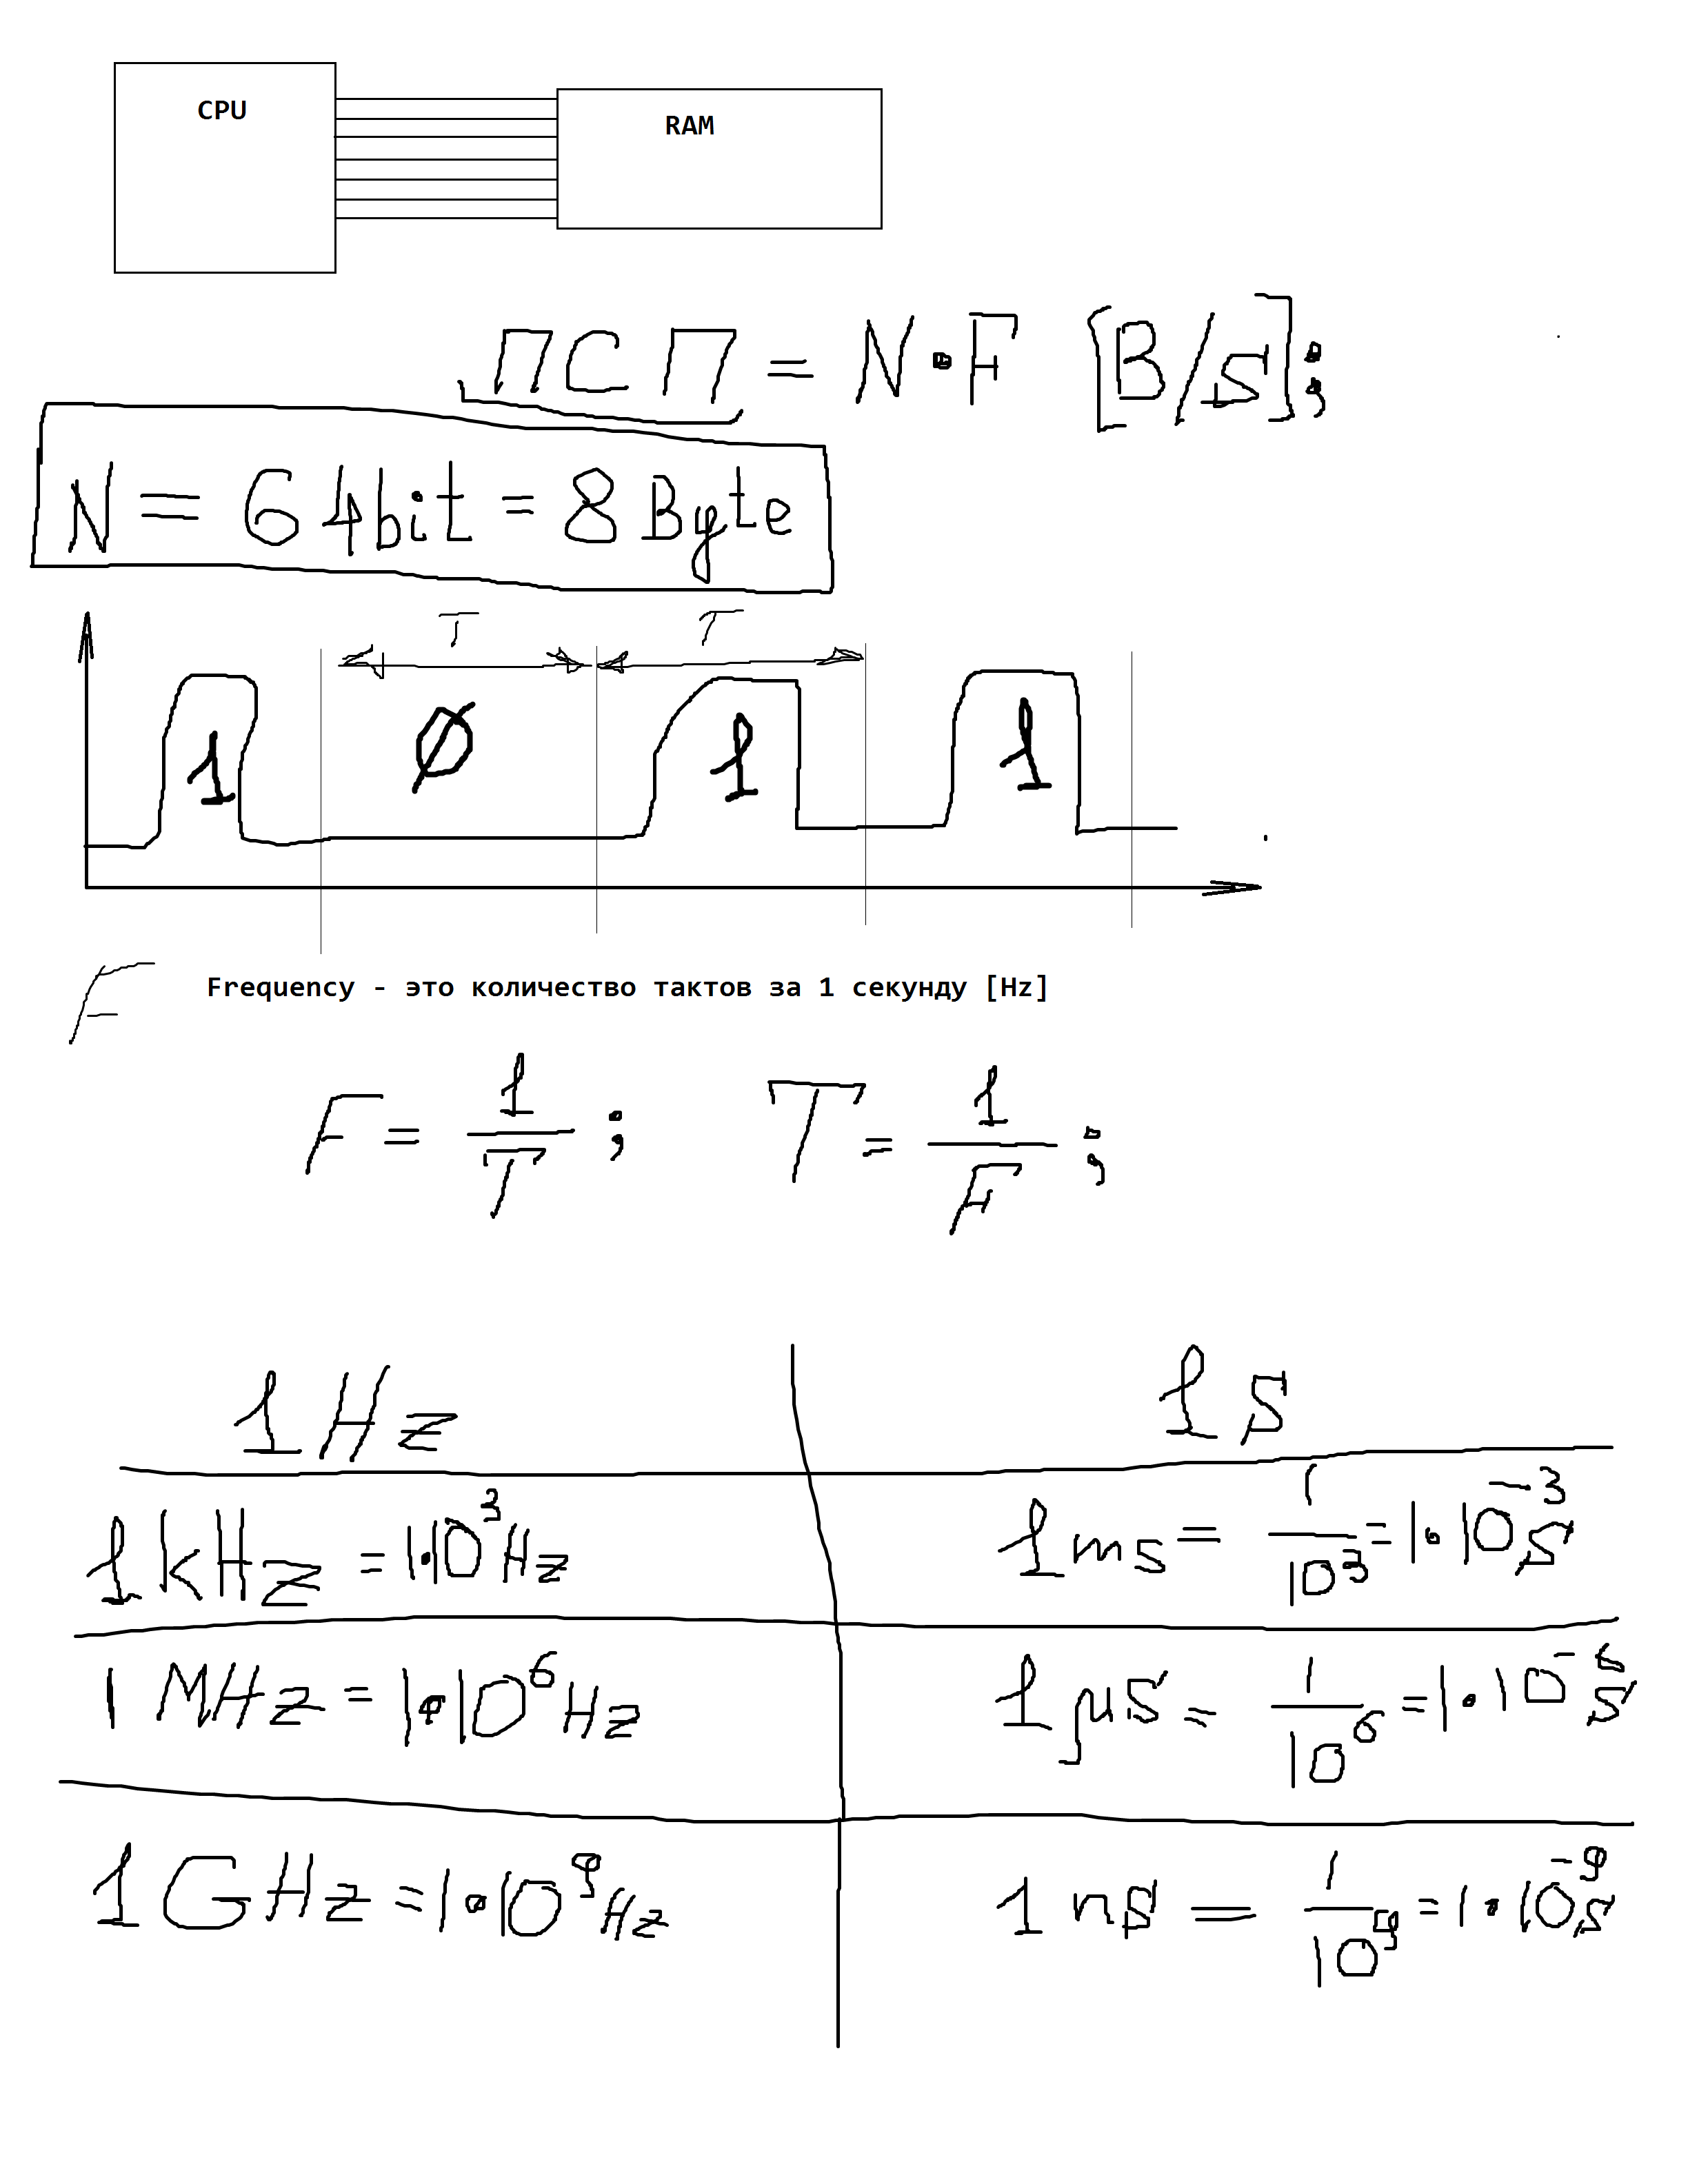 CPU
RAM
ПСП = N·F [B/s];
N = 64bit = 8 Byte
T T
1 0 1 1
F Frequency - это количество тактов за 1 секунду [Hz]
F = 1/T ; T = 1/F ;
1 Hz 1 s
1 kHz = 1·10³ Hz 1 ms = 1/10³ = 1·10⁻³ s
1 MHz = 1·10⁶ Hz 1 µs = 1/10⁶ = 1·10⁻⁶ s
1 GHz = 1·10⁹ Hz 1 ns = 1/10⁹ = 1·10⁻⁹ s